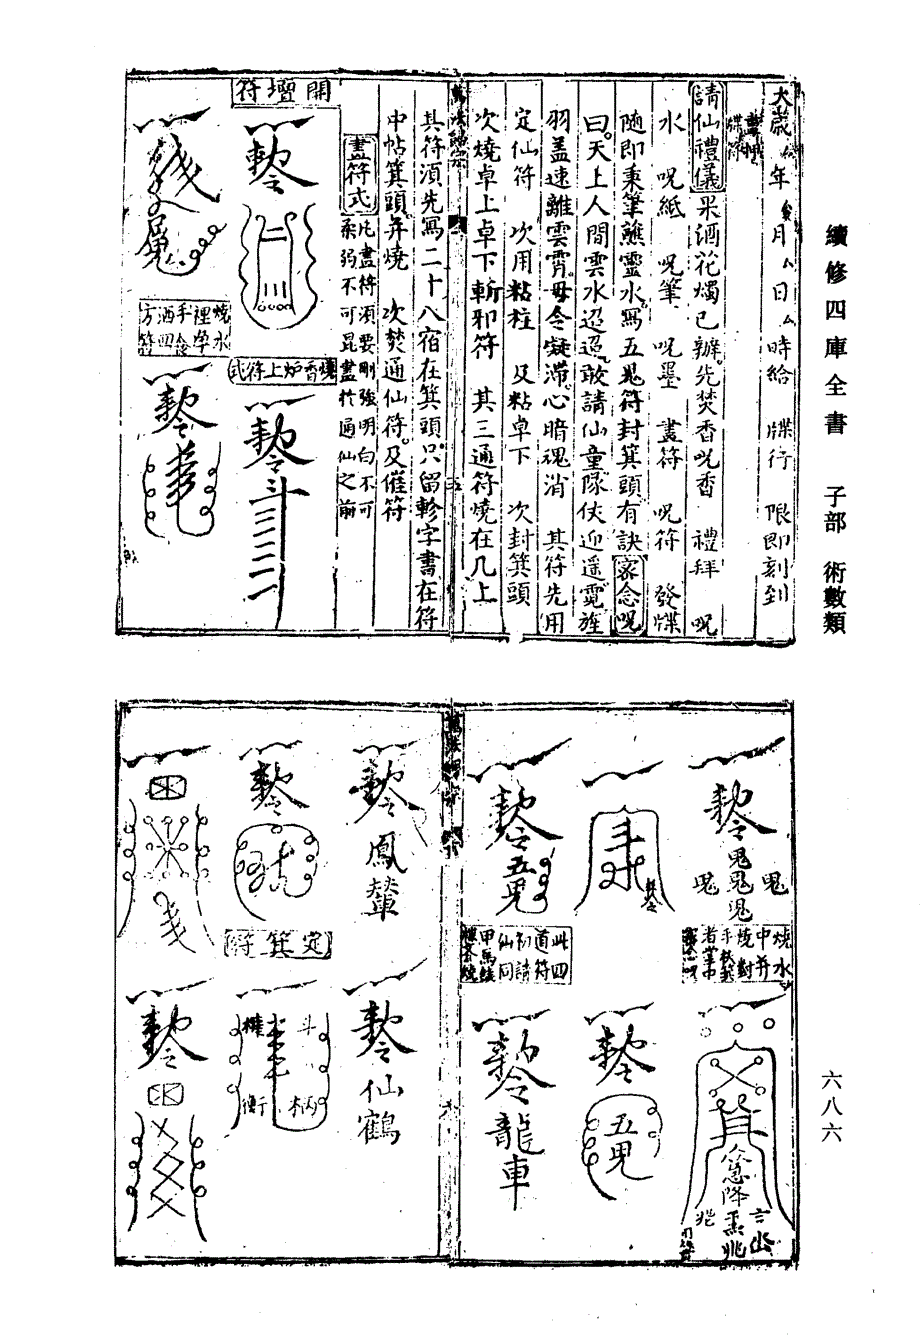 續修四庫全書 子部 術數類
六八六
大歲ㄙ年ㄙ月ㄙ日ㄙ時給 牒行 限即刻到
請仙禮儀 果酒花燭已辦先焚香呪香 禮拜 呪
水 呪紙 呪筆 呪墨 畫符 呪符 發牒
隨即秉筆蘸靈水寫五鬼符封箕頭有訣 密念呪
曰天上人間雲水迢迢敢請仙童隊伏迎遥霓旌
羽盖速離雲霄毋令凝滯心暗魂消 其符先用
定仙符 次用粘柱 及粘卓下 次封箕頭
次燒卓上卓下斬邪符 其三通符燒在几上
其符湏先寫二十八宿在箕頭只留軫字書在符
中帖箕頭并燒 次焚通仙符及催符
畫符式 凡畫符須要剛強明白不可
柔弱不可昆畫於通仙之前
開壇符
勅令
燒香炉上符式
勅令
燒水
裡學
手念
洒四
方符
勅令
勅令鬼鬼鬼
鬼 鬼
燒水
中并
燒對
此四
道符
初請
仙同
甲馬
勅令五鬼
勅令
五鬼
勅令龍車
勅令鳳輦
勅令仙鶴
勅令
定箕符
斗柄
權衡
勅令